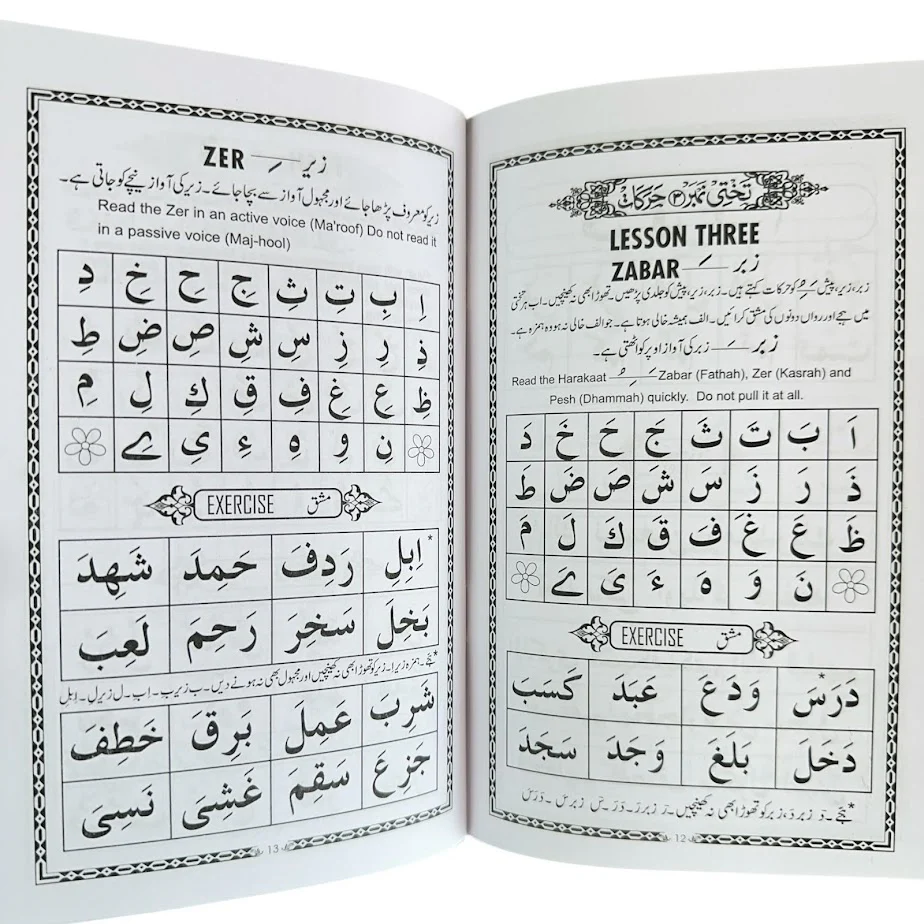 تختی نمبر ۳ حرکات
LESSON THREE
ZABAR ـَـ زبر
زبر، زیر، پیش ـَـِـُـ کو حرکات کہتے ہیں۔ زبر، زیر، پیش کو جلدی پڑھیں۔ تھوڑا بھی نہ کھینچیں۔ اب ہر تختی
میں ہجے اور رواں دونوں کی مشق کرائیں۔ الف ہمیشہ خالی ہوتا ہے۔ جو الف خالی نہ ہو وہ ہمزہ ہے۔
زبر ـَـ زبر کی آواز اوپر کو اٹھتی ہے۔
Read the Harakaat ـُـِـَـ Zabar (Fathah), Zer (Kasrah) and
Pesh (Dhammah) quickly. Do not pull it at all.
اَ بَ تَ ثَ جَ حَ خَ دَ
ذَ رَ زَ سَ شَ صَ ضَ طَ
ظَ عَ غَ فَ قَ كَ لَ مَ
نَ وَ هَ ءَ یَ ےَ
EXERCISE مشق
دَرَسَ* وَدَعَ عَبَدَ كَسَبَ
دَخَلَ بَلَغَ وَجَدَ سَجَدَ
*ہجے۔ دَ زبر دَ، زبر کو تھوڑا بھی نہ کھینچیں۔ رَ زبر رَ۔ دَرَ۔ سَ زبر سَ۔ دَرَسَ
12
ZER ـِـ زیر
زیر کو معروف پڑھا جائے اور مجہول آواز سے بچا جائے۔ زیر کی آواز نیچے کو جاتی ہے۔
Read the Zer in an active voice (Ma'roof) Do not read it
in a passive voice (Maj-hool)
اِ بِ تِ ثِ جِ حِ خِ دِ
ذِ رِ زِ سِ شِ صِ ضِ طِ
ظِ عِ غِ فِ قِ كِ لِ مِ
نِ وِ هِ ءِ یِ ےِ
EXERCISE مشق
اِبِلِ* رَدِفَ حَمِدَ شَهِدَ
بَخِلَ سَخِرَ رَحِمَ لَعِبَ
*ہجے۔ ہمزہ زیر اِ۔ زیر کو تھوڑا بھی نہ کھینچیں اور مجہول بھی نہ ہونے دیں۔ ب زیر بِ۔ اِبِ۔ ل زیر لِ۔ اِبِلِ
شَرِبَ عَمِلَ بَرِقَ خَطِفَ
جَزِعَ سَقِمَ غَشِیَ نَسِیَ
13